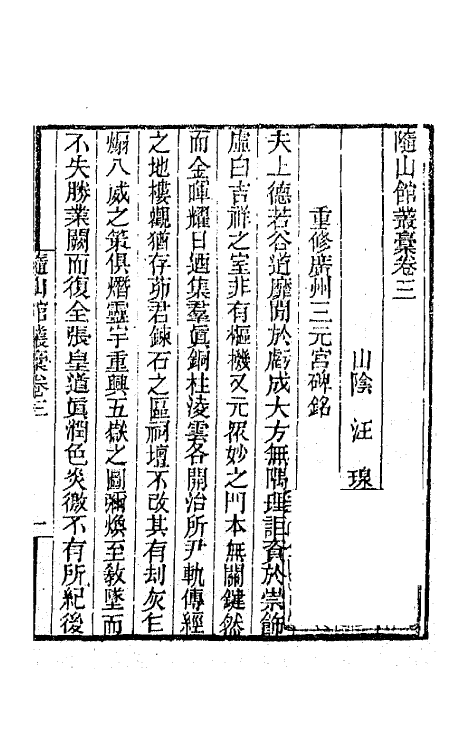 隨山館叢稾卷三
山陰 汪瑔
重修廣州三元宮碑銘
夫上德若谷道靡閒於虧成大方無隅理詎資於崇飾
虛白吉祥之室非有樞機又元眾妙之門本無關鍵然
而金暉耀日迺集羣眞銅柱淩雲各開治所尹軌傳經
之地樓觀猶存茆君鍊石之區祠壇不改其有刦灰乍
煽八威之策俱熸靈宇重興五嶽之圖彌煥至敎墜而
不失勝業闕而復全張皇道眞潤色炎徼不有所紀後
隨山館叢稾卷三 一